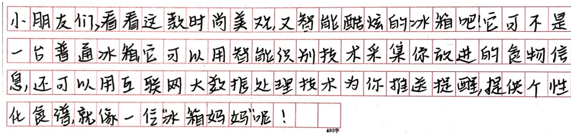 小朋友们,看看这款时尚美观,又智能酷炫的冰箱吧!它可不是
一台普通冰箱它可以用智能识别技术采集你放进的食物信
息,还可以用互联网大数据处理技术为你推送提醒,提供个性
化食谱,就像一位“冰箱妈妈”呢!